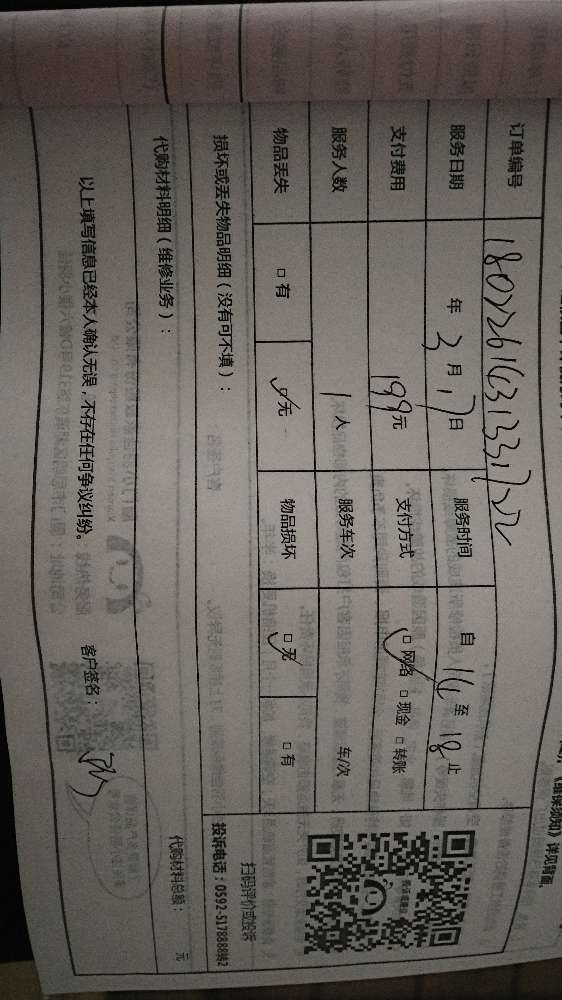 《维保须知》详见背面。
订单编号 1802261631331722
服务日期 年 3 月 17 日 服务时间 自 14 至 18 止
支付费用 199 元 支付方式 □ 网络 □ 现金 □ 转账
服务人数 1 人 服务车次 车/次
物品丢失 □ 有 □ 无 物品损坏 □ 无 □ 有
损坏或丢失物品明细（没有可不填）：
扫码评价或投诉
投诉电话：0592-5178888转2
代购材料明细（维修业务）：
代购材料总额： 元
以上填写信息已经本人确认无误，不存在任何争议纠纷。 客户签名：